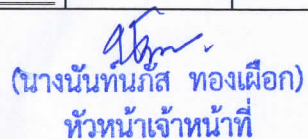 (นางนันทน์ภัส ทองเผือก)
หัวหน้าเจ้าหน้าที่